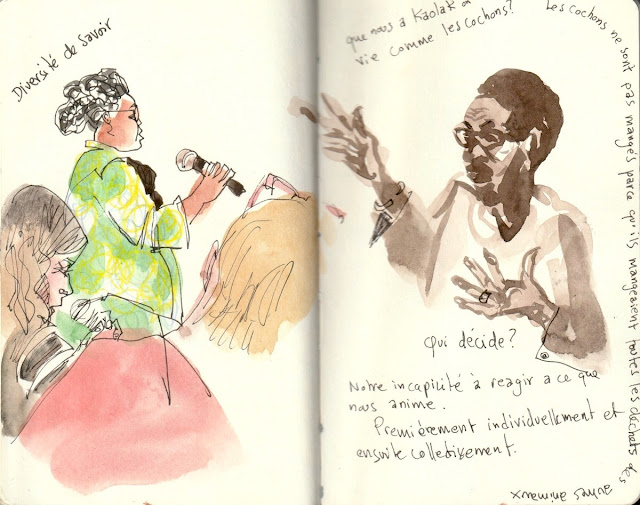 Diversité de savoir
que nous à Kaolak on
vie comme les cochons?
Les cochons ne sont pas mangés parce qu'ils mangeaient toutes les déchets des
autres animaux
qui décide?
Notre incapilité à reagir a ce que
nous anime.
Premièrement individuellment et
ensuite collectivement.